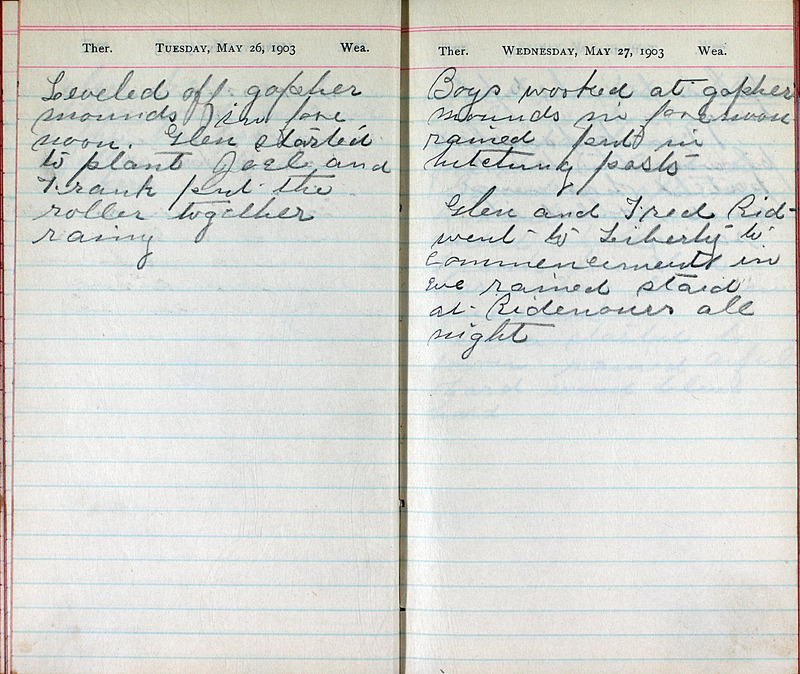 Ther. Tuesday, May 26, 1903 Wea.
Leveled off gopher
mounds in fore
noon. Glen started
to plant Joel and
Frank put the
roller together
rainy
Ther. Wednesday, May 27, 1903 Wea.
Boys worked at gopher
mounds in forenoon
rained put in
hitching posts
Glen and Fred Rid-
went to Liberty to
commencement in
eve rained staid
at Ridenours all
night